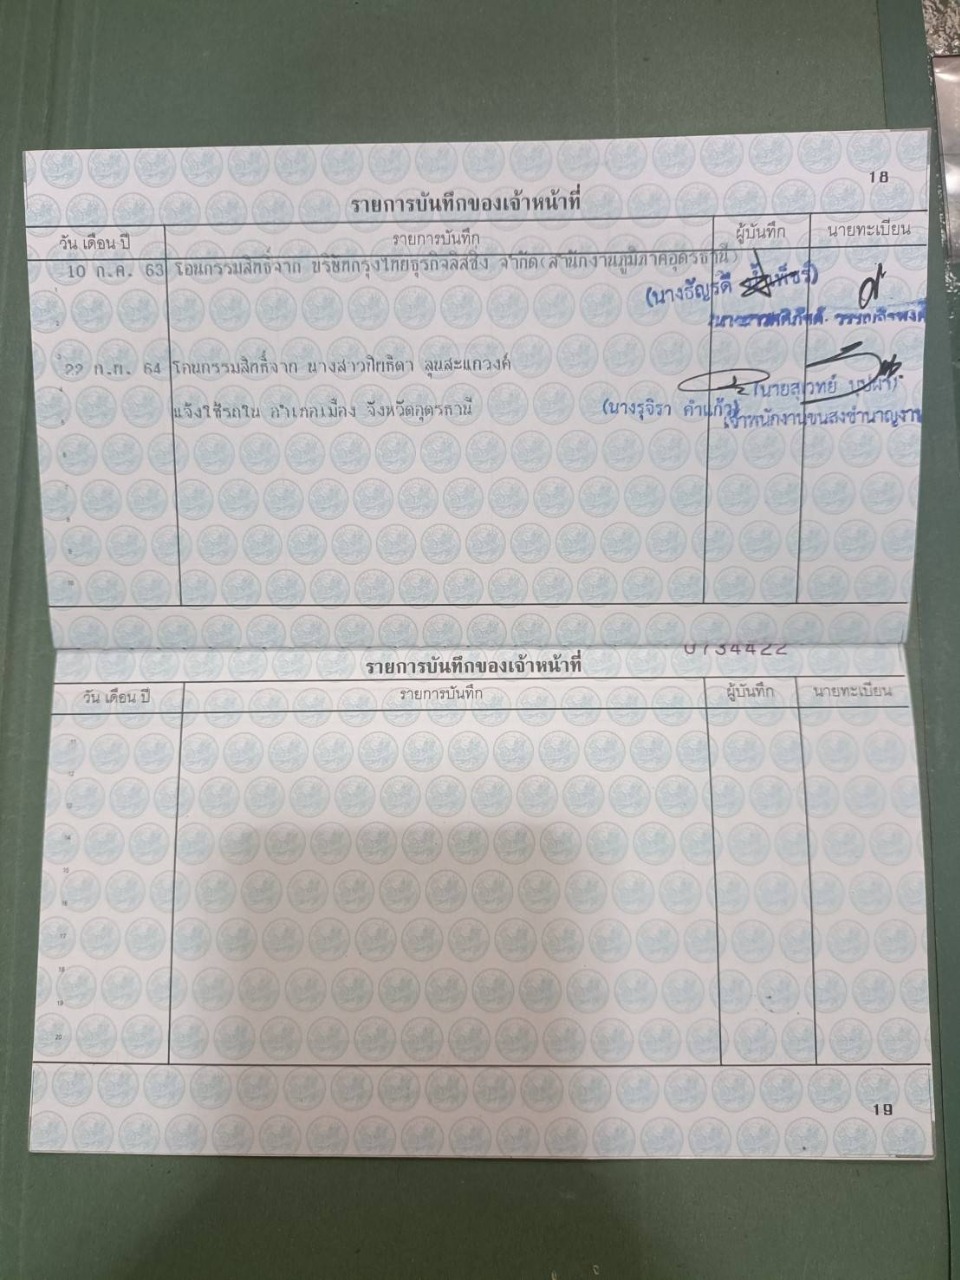 18
รายการบันทึกของเจ้าหน้าที่
วัน เดือน ปี รายการบันทึก ผู้บันทึก นายทะเบียน
10 ก.ค. 63 โอนกรรมสิทธิ์จาก บริษัทกรุงไทยธุรกิจลีสซิ่ง จำกัด(สำนักงานภูมิภาคอุดรธานี)
(นางธัญรดี
22 ก.พ. 64 โอนกรรมสิทธิ์จาก นางสาวปิทธิดา ลุนสะแกวงค์
(นายสุเวทย์ บุปผา)
แจ้งใช้รถใน อำเภอเมือง จังหวัดอุดรธานี (นางรุจิรา คำแก้ว) เจ้าพนักงานขนส่งชำนาญงาน
0734422
รายการบันทึกของเจ้าหน้าที่
วัน เดือน ปี รายการบันทึก ผู้บันทึก นายทะเบียน
12
13
14
15
16
17
18
19
20
19